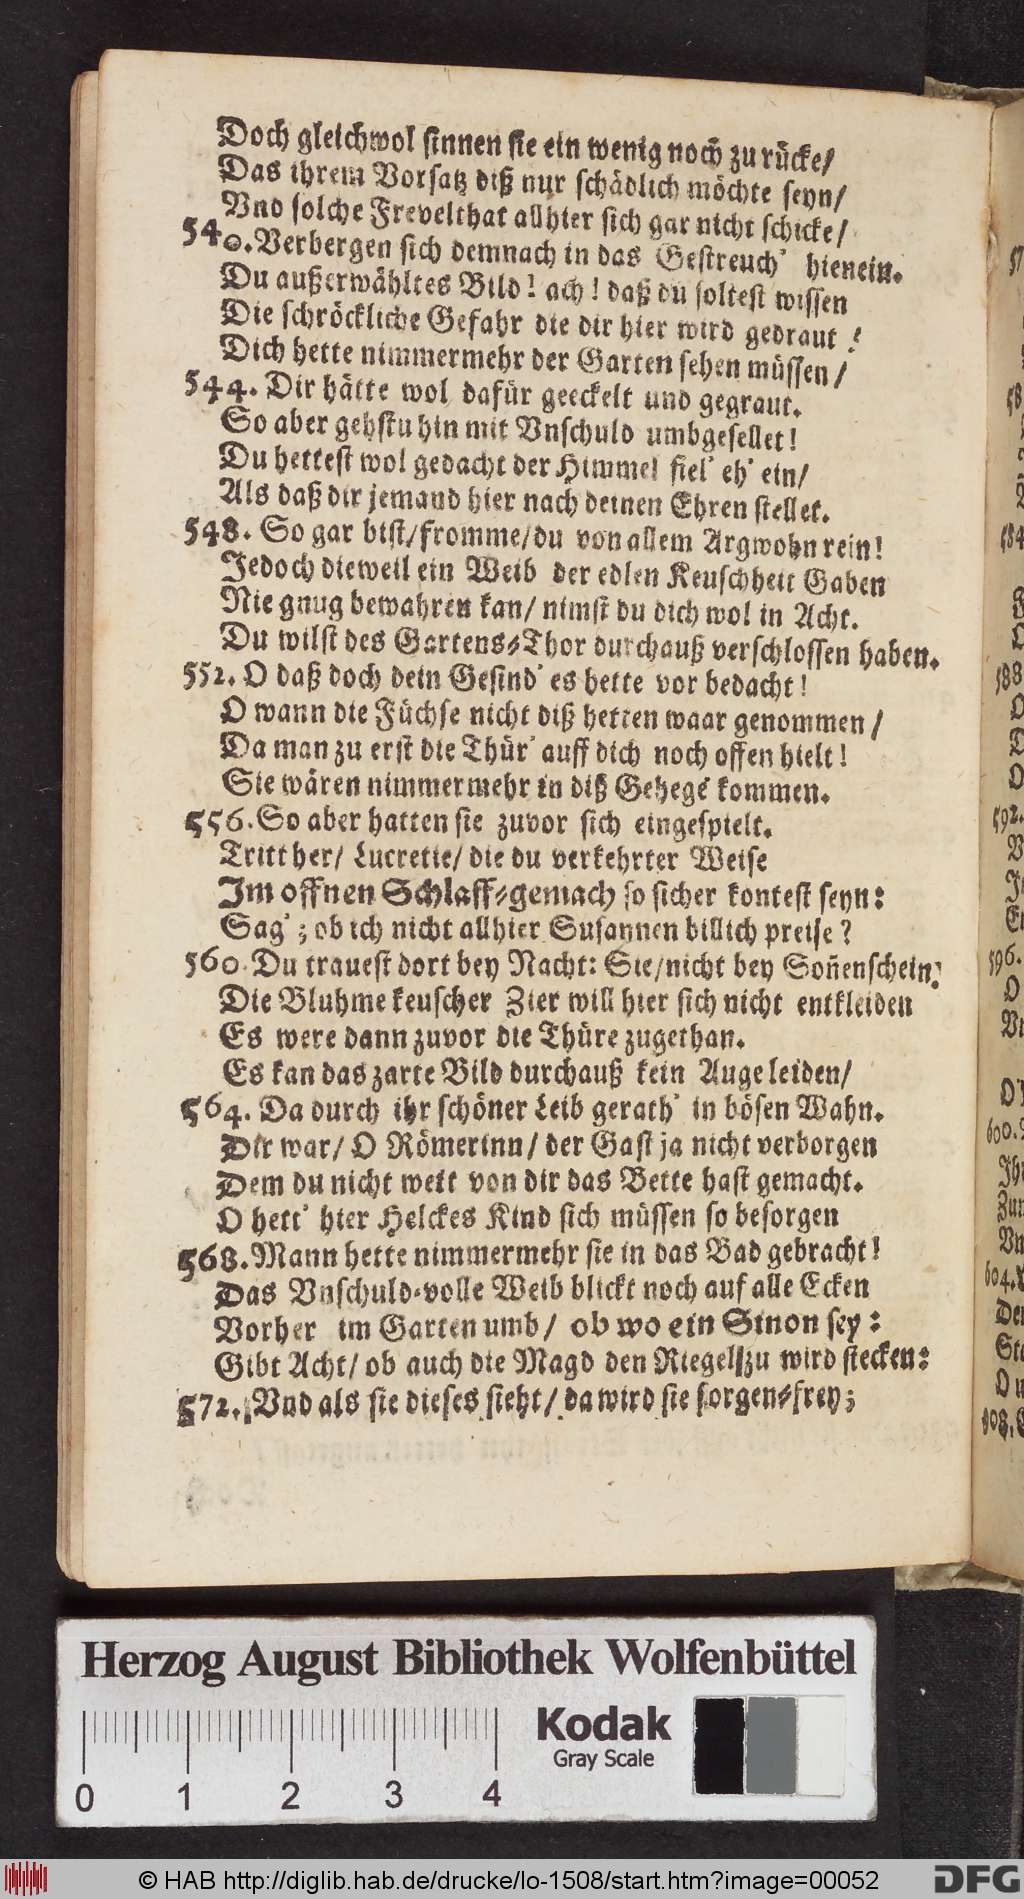 Doch gleichwol sinnen sie ein wenig noch zu rücke/
Das ihrem Vorsatz diß nur schädlich möchte seyn/
Vnd solche Frevelthat allhier sich gar nicht schicke/
540. Verbergen sich demnach in das Gestreuch' hienein.
Du außerwähltes Bild! ach! daß du soltest wissen
Die schröckliche Gefahr die dir hier wird gedraut!
Dich hette nimmermehr der Garten sehen müssen/
544. Dir hätte wol dafür geeckelt und gegraut.
So aber gehstu hin mit Vnschuld umbgesellet!
Du hettest wol gedacht der Himmel fiel' eh' ein/
Als daß dir jemand hier nach deinen Ehren stellet.
548. So gar bist/fromme/du von allem Argwohn rein!
Jedoch dieweil ein Weib der edlen Keuschheit Gaben
Nie gnug bewahren kan/ nimst du dich wol in Acht.
Du wilst des Gartens-Thor durchauß verschlossen haben.
552. O daß doch dein Gesind' es hette vor bedacht!
O wann die Füchse nicht diß hetten waar genommen/
Da man zu erst die Thür' auff dich noch offen hielt!
Sie wären nimmermehr in diß Gehege kommen.
556. So aber hatten sie zuvor sich eingespielt.
Tritt her/ Lucretie/ die du verkehrter Weise
Im offnen Schlaff-gemach so sicher kontest seyn:
Sag'; ob ich nicht allhier Susannen billich preise?
560. Du trauest dort bey Nacht: Sie/nicht bey Soñenschein.
Die Bluhme keuscher Zier will hier sich nicht entkleiden
Es were dann zuvor die Thüre zugethan.
Es kan das zarte Bild durchauß kein Auge leiden/
564. Da durch ihr schöner Leib gerath' in bösen Wahn.
Dir war/ O Römerinn/ der Gast ja nicht verborgen
Dem du nicht weit von dir das Bette hast gemacht.
O hett' hier Helckes Kind sich müssen so besorgen
568. Mann hette nimmermehr sie in das Bad gebracht!
Das Vnschuld-volle Weib blickt noch auf alle Ecken
Vorher im Garten umb/ ob wo ein Sinon sey:
Gibt Acht/ ob auch die Magd den Riegel zu wird stecken:
572. Vnd als sie dieses sieht/ da wird sie sorgen-frey;
584
588
592.
596.
600.
604.
Herzog August Bibliothek Wolfenbüttel
0 1 2 3 4
Kodak
Gray Scale
© HAB http://diglib.hab.de/drucke/lo-1508/start.htm?image=00052
DFG